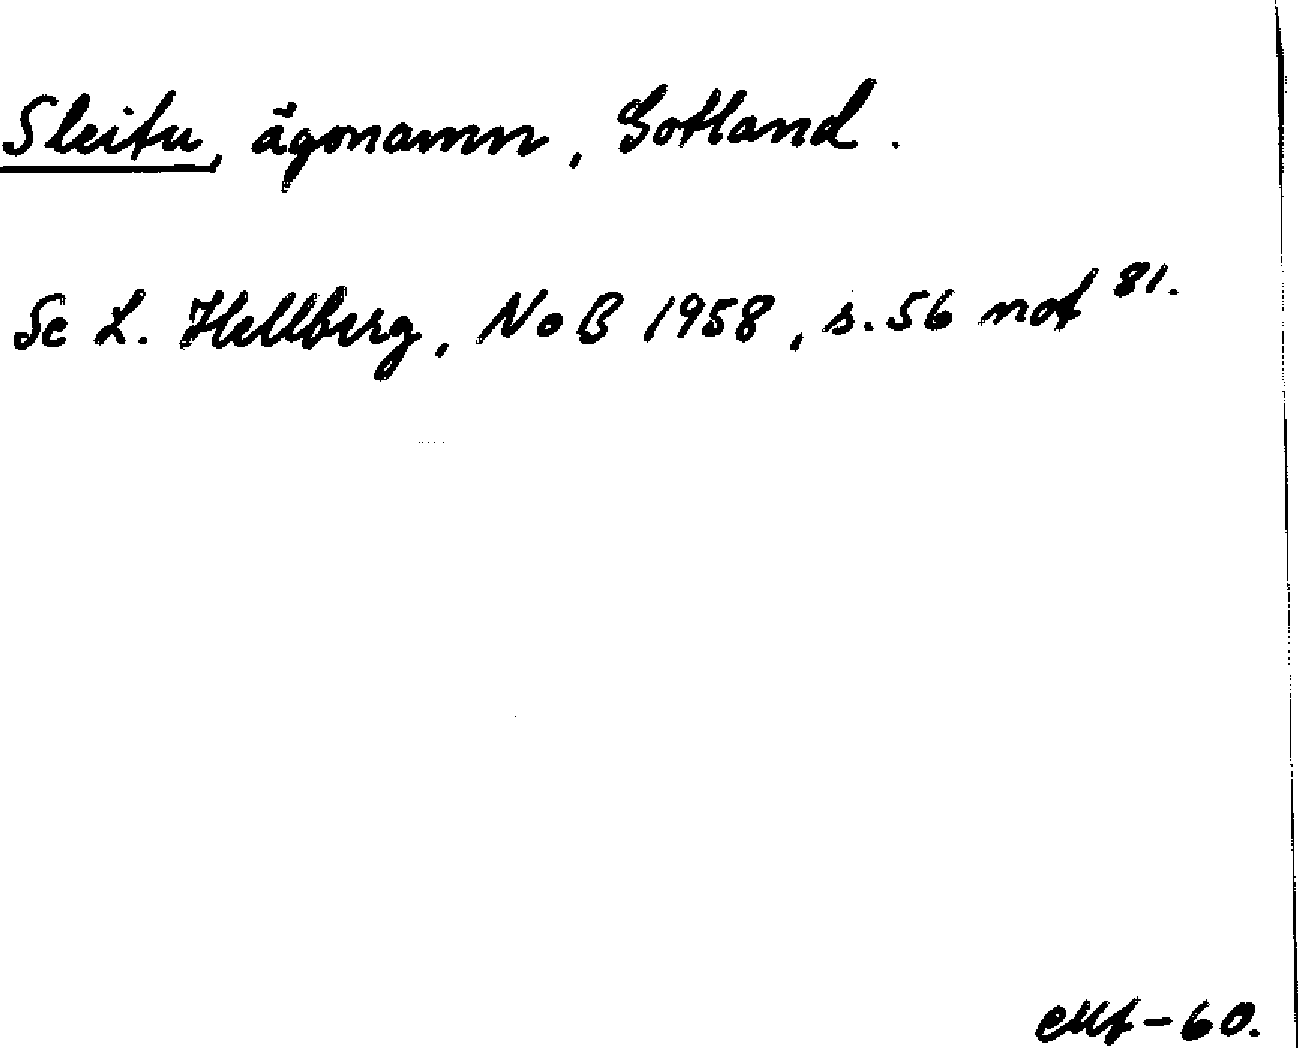 Sleitu, ägonamn, Gotland.
Se L. Hellberg, NoB 1958, s. 56 not 81.
-60.